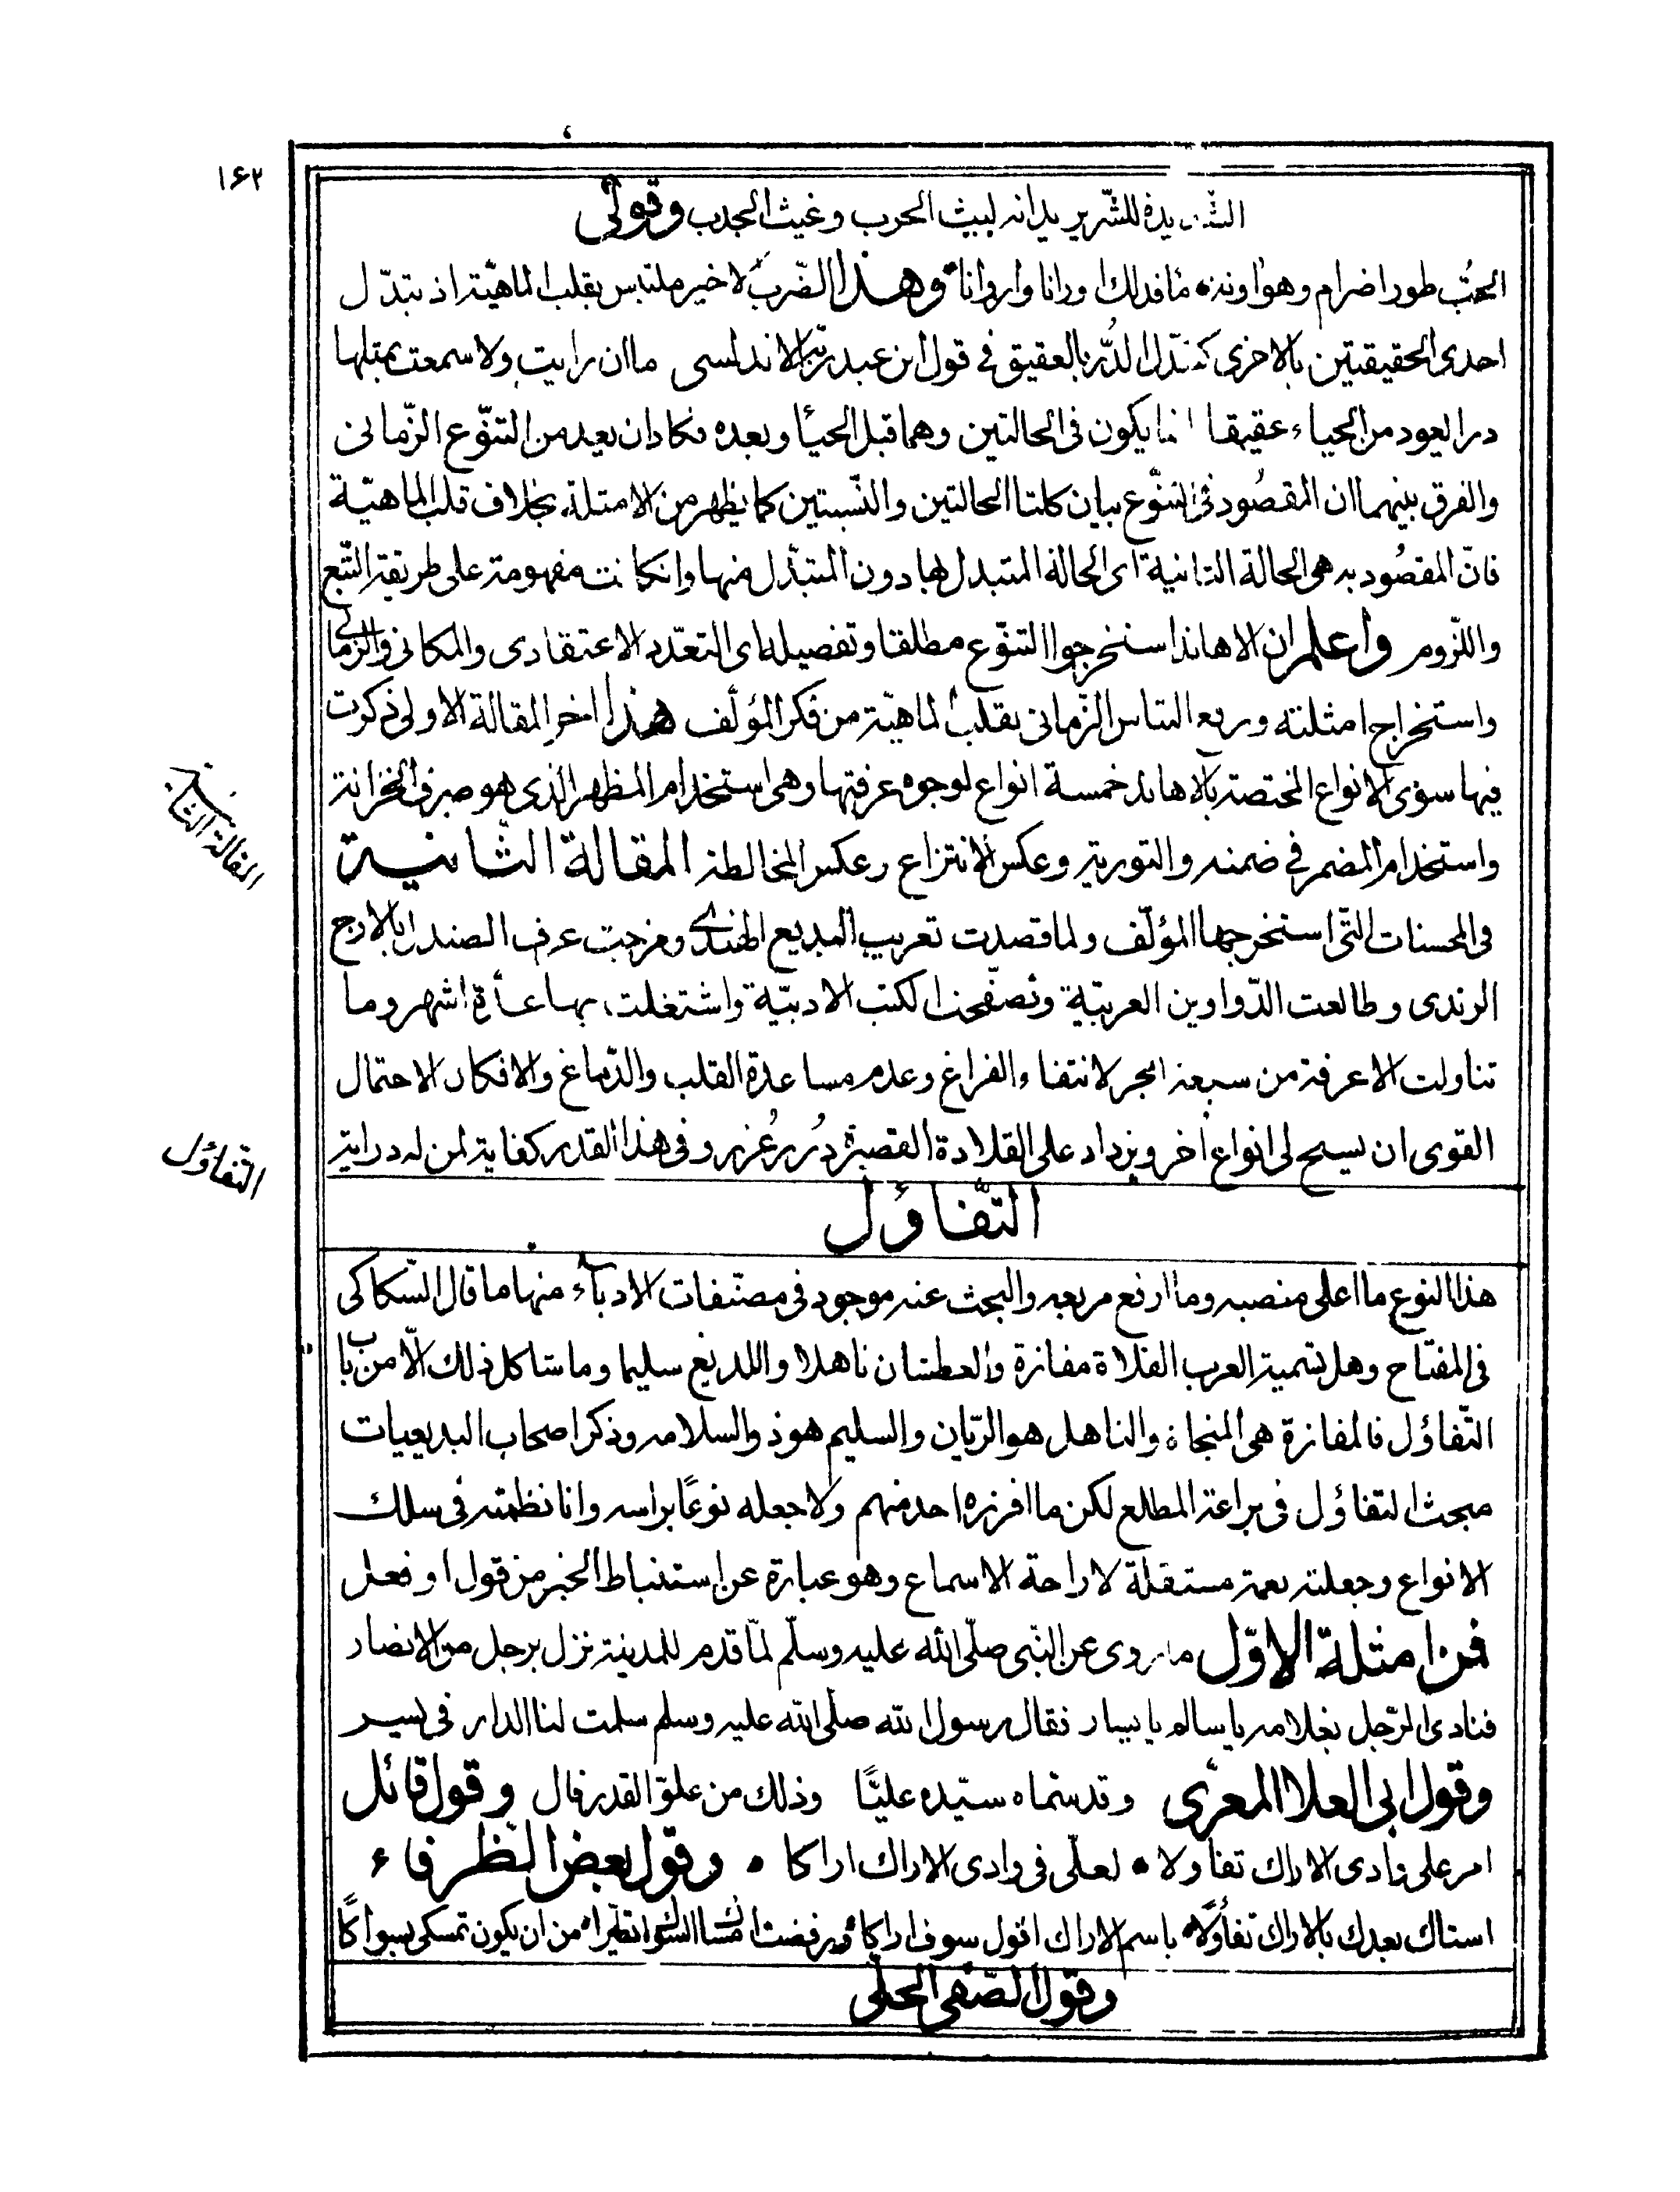 ١۶٢
للشرير يد انه لبيث الحرب وغيث الجدب وقولى
الحبّ طورا ضرام وهو اونة فافد لك اورانا واروانا وهذا الضّرب الاخير ملتبس بقلب الماهيّة اذ تبدّل
احدى الحقيقتين بالاخرى كتبدّل الدُّر بالعقيق فى قول ابن عبد ربّه الاندلسى ما ان رايت ولا سمعت بمثلها
درا يعود من الحياء عقيقا انما يكون فى الحالتين وهما قبل الحياء وبعده فكاد ان يعد من التنوّع الزّمانى
والفرق بينهما ان المقصُود فى التنوّع بيان كلتا الحالتين والنّسبتين كما يظهر من الامثلة بخلاف قلب الماهيّة
فانّ المقصُود به هى الحالة الثانية اى الحالة المتبدل لها دون المتبدّل منها وانكانت مفهومة على طريقة التّبع
واللّزوم واعلم ان الاهاند استخرجوا التنوّع مطلقا وتفصيله اى التعدّد الاعتقادى والمكانى والزمانى
واستخراج امثلته ورفع التباس الزّمانى بقلب الماهيّة من فكر المؤلّف هذا اخر المقالة الاولى ذكرت
فيها سوى الانواع المختصة بالاهاند خمسة انواع لوجوه عرفتها وهى استخدام المظهر الذى هو صرف الخزانة
واستخدام المضمر فى ضمنه والتورية وعكس الانتزاع وعكس المخالطة المقالة الثّانية
المقالة الثانية
فى المحسنات التّى استخرجها المؤلّف ولما قصدت تعريب البديع الهندى ومزجت عرف الصندل بالارج
الرندى وطالعت الدّواوين العربيّة وتصفّحت الكتب الادبيّة واشتغلت بها عدّة اشهر وما
تناولت الا غرفة من سبعة ابحر لانتفاء الفراغ وعدم مساعدة القلب والدّماغ والا فكان الاحتمال
القوى ان يسنح لى انواع اخر ويزداد على القلادة القصيرة دُرر غُرر وفى هذا القدر كفاية لمن له دراية
التّفاؤل
التّفاؤل
هذا النوع ما اعلى منصبه وما ارفع مربعه والبحث عنه موجود فى مصنّفات الادباء منها ما قال السّكاكى
فى المفتاح وهل تسمية العرب الفلاة مفازة والعطشان ناهلا واللديغ سليما وما شاكل ذلك الّا من باب
التّفاؤل فالمفازة هى المنجاة والناهل هو الرّيان والسليم هو ذو السلامه وذكر اصحاب البديعيات
مبحث التفاؤل فى براعة المطلع لكن ما افرزه احد منهم ولا جعله نوعًا براسه وانا نظمته فى سلك
الانواع وجعلته نعمة مستقلة لاراحة الاسماع وهو عبارة عن استنباط الخير من قول او فعل
فمن امثلة الاوّل ما روى عن النّبى صلّى الله عليه وسلّم لمّا قدم للمدينة نزل برجل من الانصار
فنادى الرّجل بغلامه يا سالم يا يسار فقال رسول الله صلّى الله عليه وسلم سلمت لنا الدار فى يسير
وقول ابى العلا المعرّى وقد سمّاه سيّده عليًّا وذلك من علوّ القدر فال وقول قائل
امر على وادى الاراك تفاولا لعلّى فى وادى الاراك اراكا وقول بعض الظرفاء
استاك بعدك بالاراك تفأولًا باسم الاراك اقول سوف اراكا ورفضت السواك تطيّرا من ان يكون تمسكى بسواكا
وقول الصّفى الحلّى